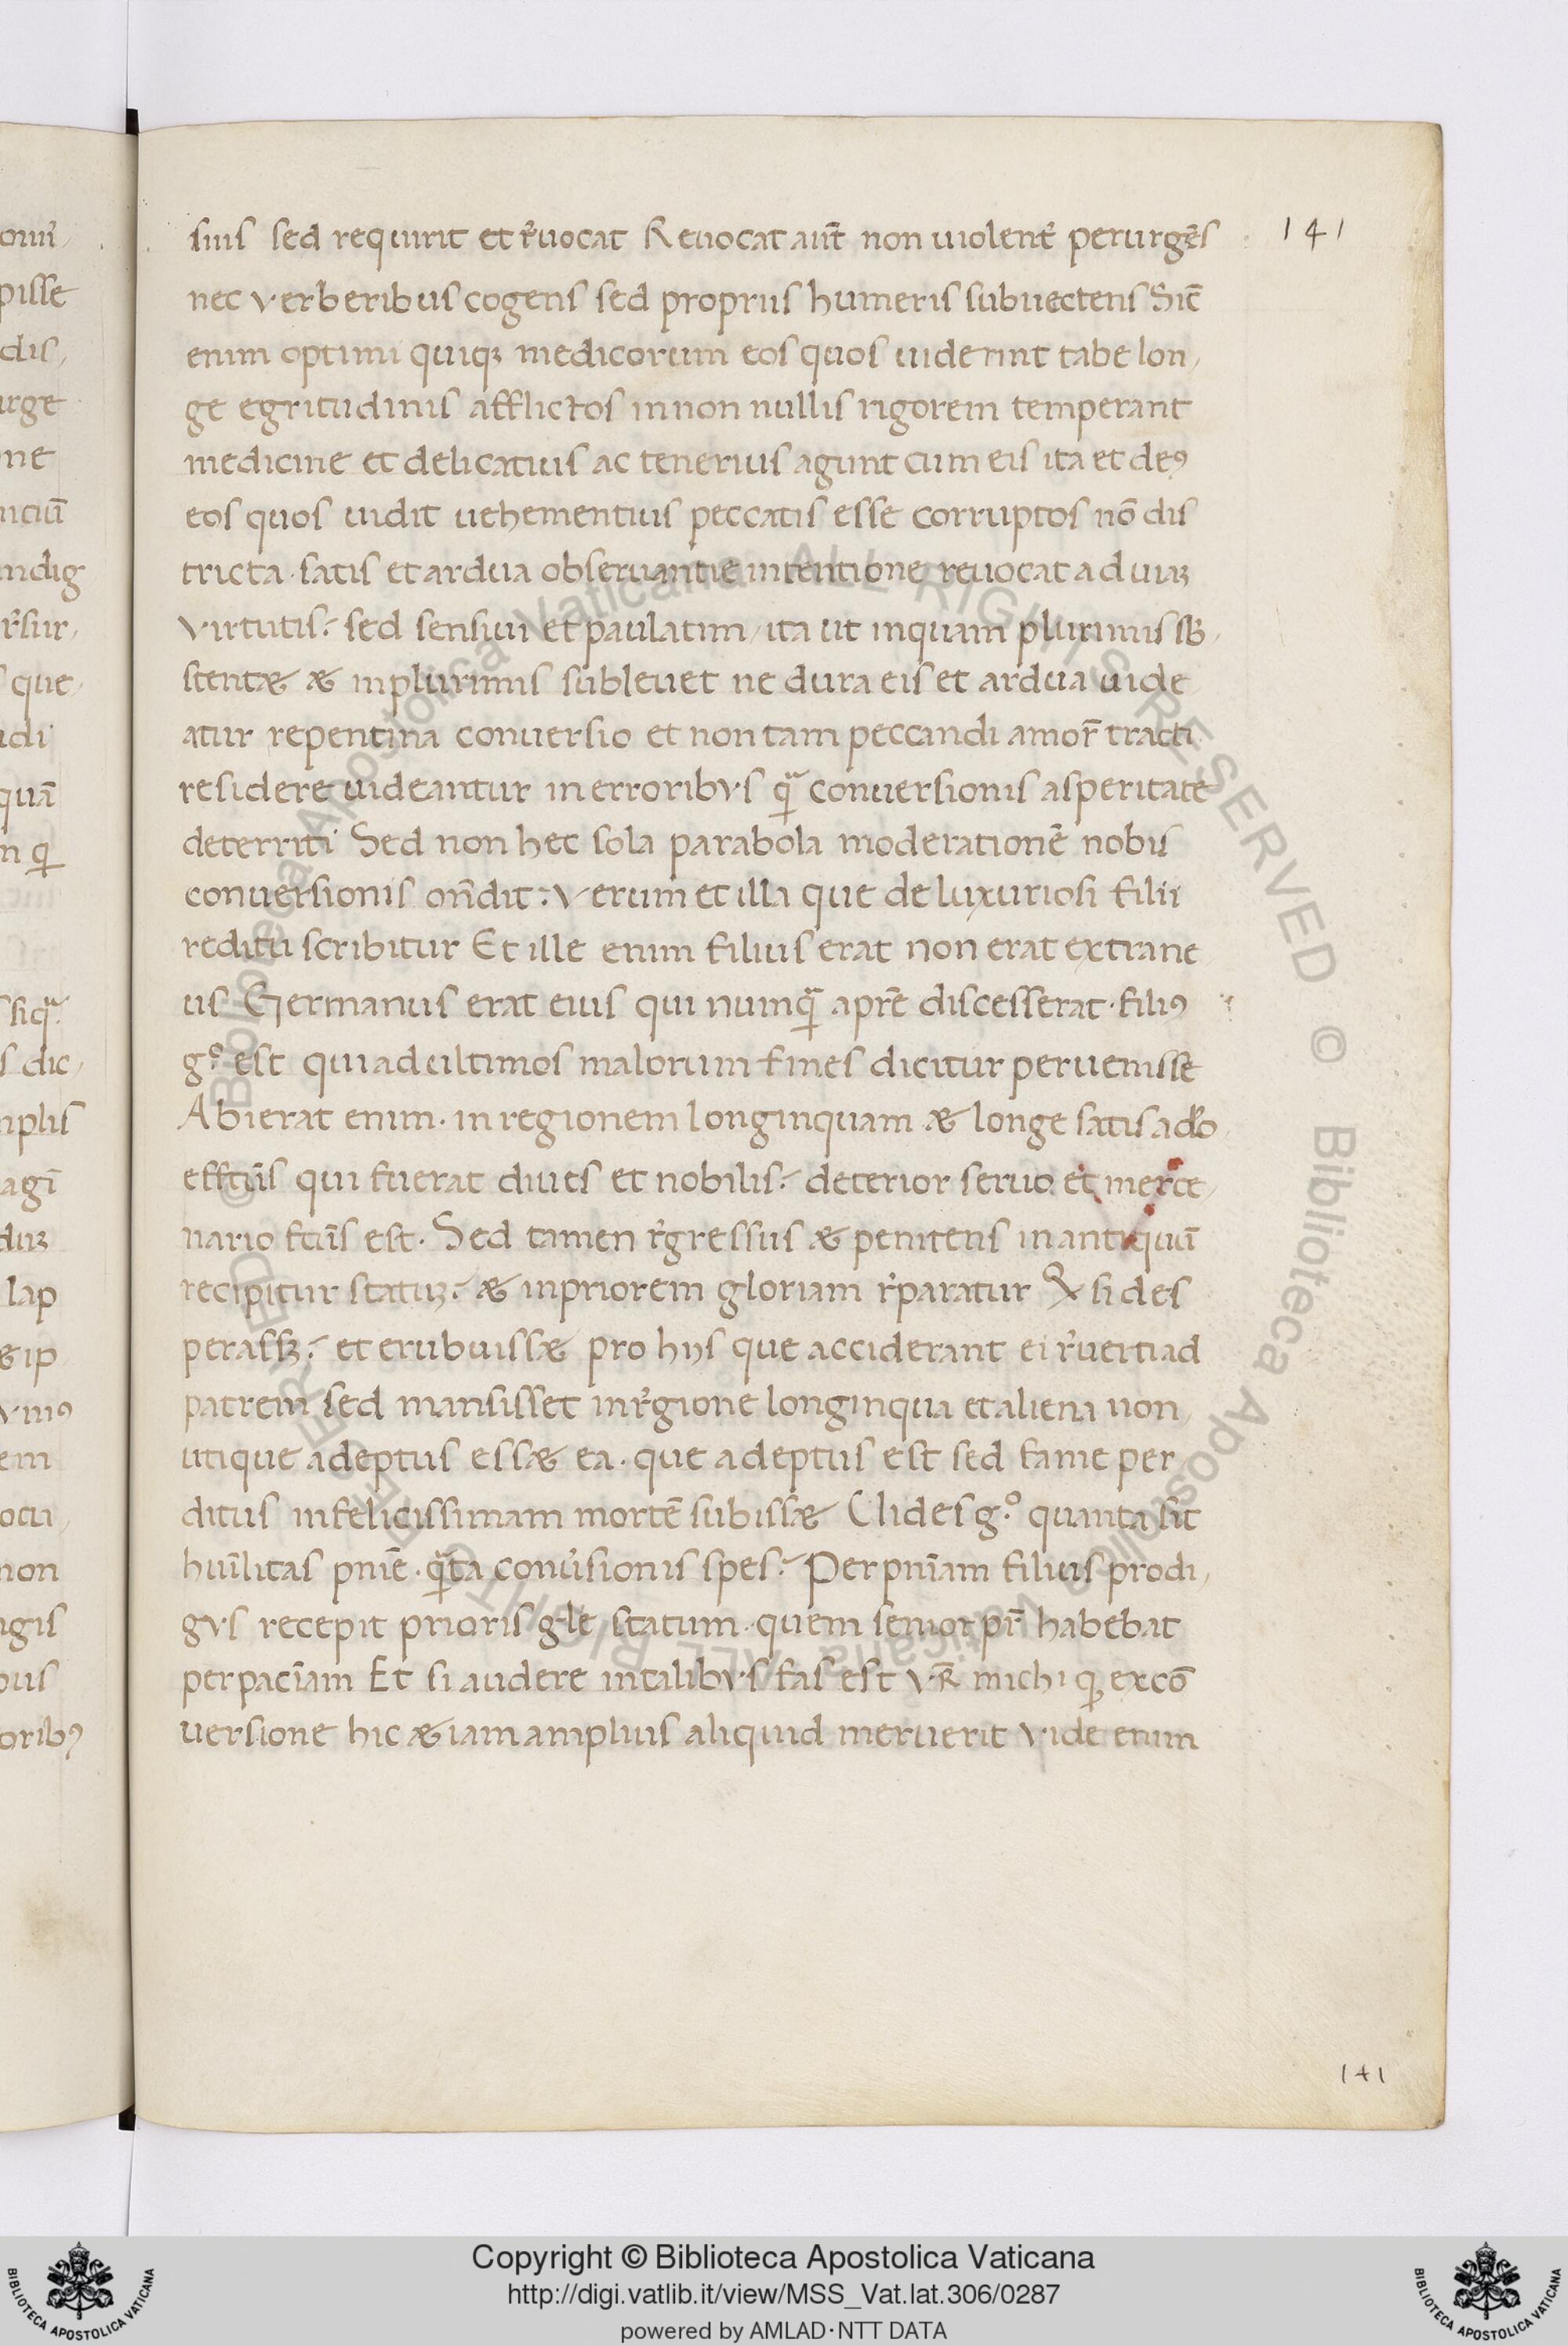 suis sed requirit et r̄uocat Reuocat aut̄ non uiolent̄ perurgēs
141
nec verberibus cogens sed propriis humeris subuectens Sic̄
enim optimi quiqꝫ medicorum eos quos uiderint tabe lon,
ge egritudinis afflictos in non nullis rigorem temperant
medicine et delicatius ac tenerius agunt cum eis ita et deꝰ
eos quos uidit uehementius peccatis esse corruptos nō dis
tricta · satis et ardua obseruantie intentione reuocat ad uiaꝫ
virtutis? sed sensim et paulatim, ita ut inquam plurimis sb̄,
stent& & inplurimis subleuet ne dura eis et ardua uide
atur repentina conuersio et non tam peccandi amor̄ tracti
residere uideantur in erroribus ꝙᷓ conuersionis asperitate
deterriti Sed non hec sola parabola moderationē nobis
conuersionis on̄dit : Verum et illa que de luxuriosi filii
reditu scribitur Et ille enim filius erat non erat extrane
us Germanus erat eius qui numꝙᷓ apr̄e discesserat · filiꝰ
g° est qui ad ultimos malorum fines dicitur peruenisse
Abierat enim · in regionem longinquam & longe satis adō
effc̄us qui fuerat diues et nobilis? deterior seruo et merce,
nario fc̄us est · Sed tamen r̄gressus & penitens in antiquū
recipitur statuꝫ? & inpriorem gloriam r̄paratur Qꝫ si des
perassꝫ? et erubuiss& pro hijs que acciderant ei r̄uerti ad
patrem sed mansisset inr̄gione longinqua et aliena non,
utique adeptus ess& ea · que adeptus est sed fame per
ditus infelicissimam mortē subiss& Uides g° quanta sit
huīlitas pnīe · ꝙᷓta conūsionis spes? Per pnīam filius prodi,
gus recepit prioris gl̄e statum · quem senior pr̄ habebat
per pacīam Et si audere in talibus fas est vr̄ michi ꝙ excō
uersione hic & iam amplius aliquid meruerit vide enim
141
Copyright © Biblioteca Apostolica Vaticana
http://digi.vatlib.it/view/MSS_Vat.lat.306/0287
powered by AMLAD·NTT DATA